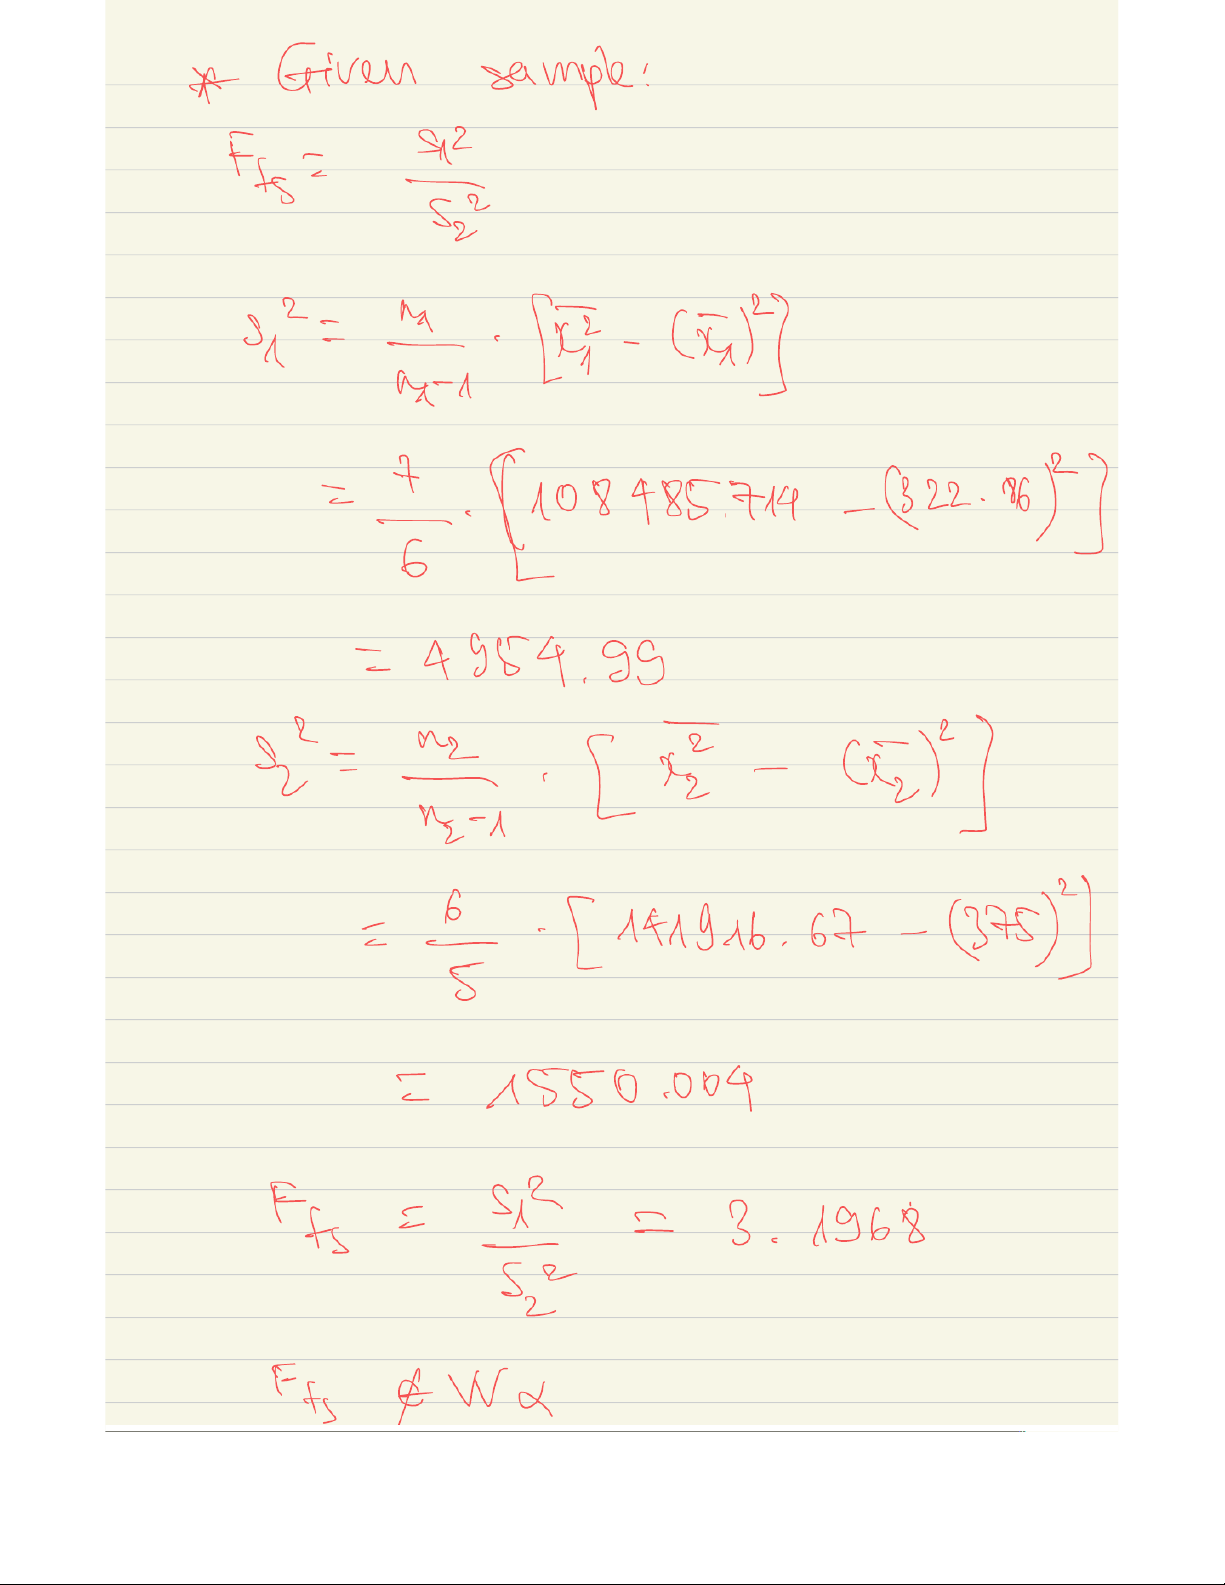 * Given sample:
F_fs = s₁² / s₂²
s₁² = n₁ / (n₁-1) · [ x̅₁² - (x̅₁)² ]
= 7/6 · [ 108485.714 - (322.86)² ]
= 4954.99
s₂² = n₂ / (n₂-1) · [ x̅₂² - (x̅₂)² ]
= 6/5 · [ 141916.67 - (375)² ]
= 1550.004
F_fs = s₁² / s₂² = 3.1968
F_fs ∉ Wα